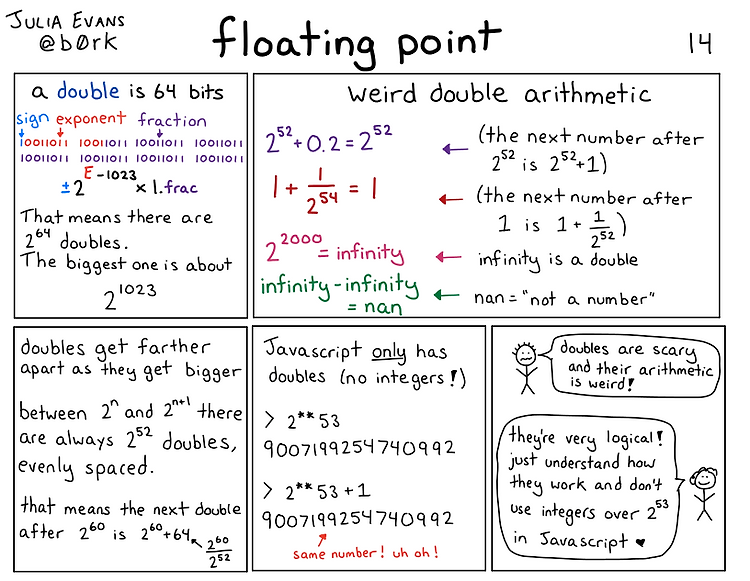 JULIA EVANS
@b0rk
floating point
14
a double is 64 bits
sign exponent fraction
10011011 10011011 10011011 10011011
10011011 10011011 10011011 10011011
±2^(E-1023) × 1.frac
That means there are
2^64 doubles.
The biggest one is about
2^1023
weird double arithmetic
2^52 + 0.2 = 2^52
(the next number after
2^52 is 2^52+1)
1 + 1/2^54 = 1
(the next number after
1 is 1 + 1/2^52)
2^2000 = infinity
infinity is a double
infinity - infinity
= nan
nan = "not a number"
doubles get farther
apart as they get bigger
between 2^n and 2^(n+1) there
are always 2^52 doubles,
evenly spaced.
that means the next double
after 2^60 is 2^60+64
2^60/2^52
Javascript only has
doubles (no integers!)
> 2**53
9007199254740992
> 2**53 + 1
9007199254740992
same number! uh oh!
doubles are scary
and their arithmetic
is weird!
they're very logical!
just understand how
they work and don't
use integers over 2^53
in Javascript ♥